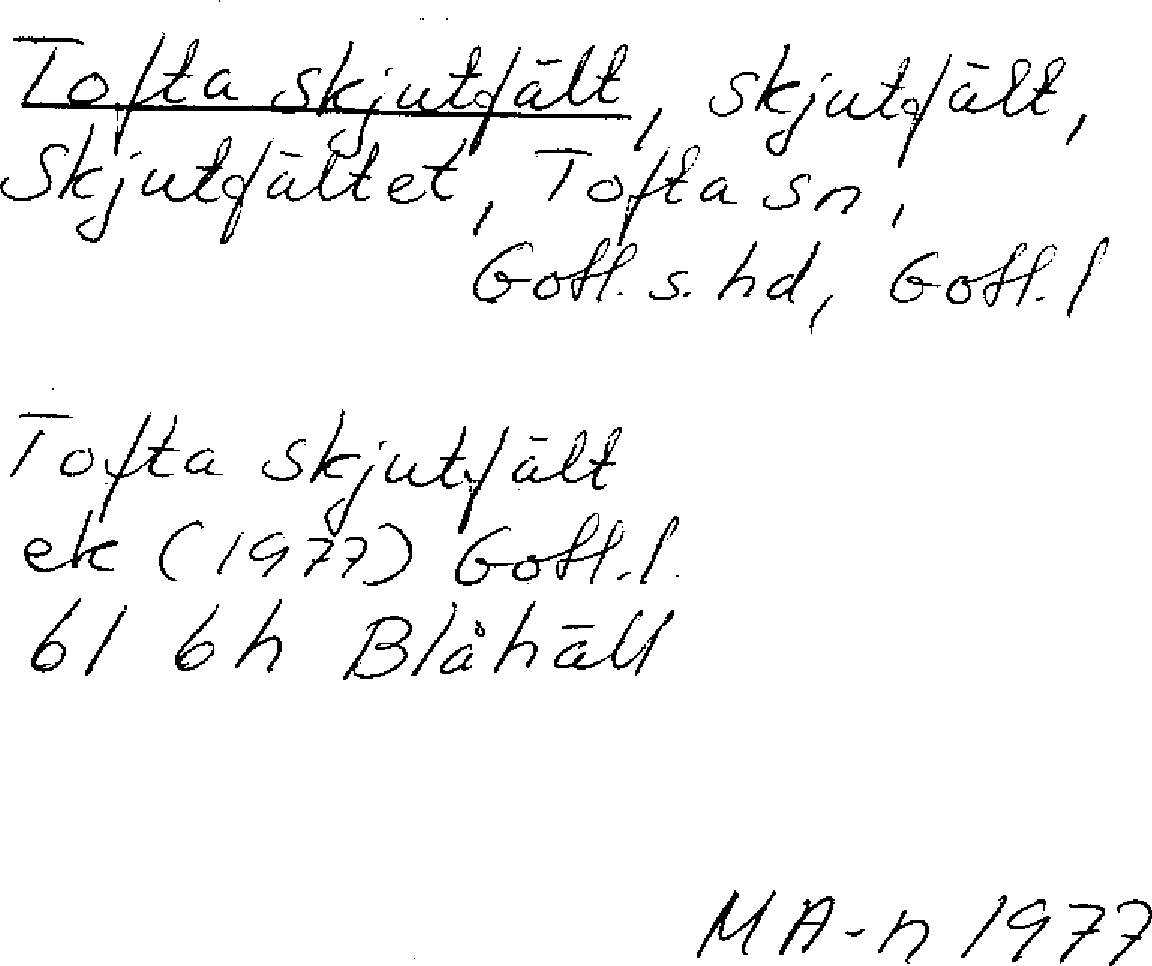 Tofta skjutfält, skjutfält,
Skjutfältet, Tofta sn,
Gotl. s. hd, Gotl. l
Tofta skjutfält
ek (1977) Gotl. l.
6I 6h Blåhäll
MA-n 1977